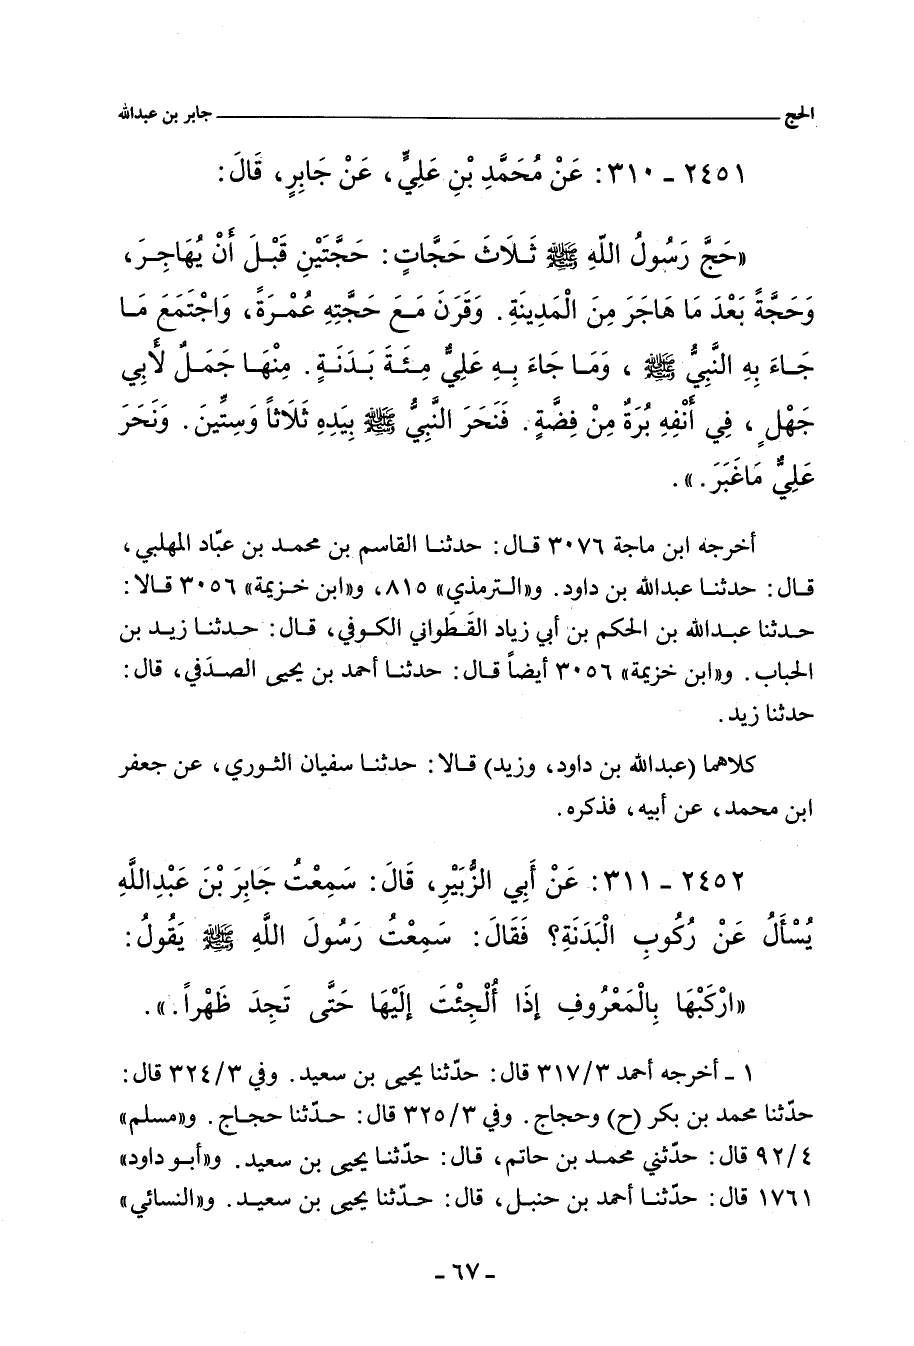 الحج ــــــــــــــــــــــــــــــــــــــــ جابر بن عبدالله
٢٤٥١ - ٣١٠: عَنْ مُحَمَّدِ بْنِ عَلِيٍّ، عَنْ جَابِرٍ، قَالَ:
«حَجَّ رَسُولُ اللّهِ ﷺ ثَـلَاثَ حَجَّاتٍ: حَجَّتَيْنِ قَبْـلَ أَنْ يُهَاجِـرَ،
وَحَجَّةً بَعْدَ مَا هَاجَرَ مِنَ الْمَدِينَةِ. وَقَرَنَ مَـعَ حَجَّتِهِ عُمْـرَةً، وَاجْتَمَعَ مَـا
جَـاءَ بِهِ النَّبِيُّ ﷺ ، وَمَـا جَاءَ بِـهِ عَلِيٌّ مِـئَـةَ بَـدَنَـةٍ. مِنْهَـا جَمَـلٌ لأَبِي
جَهْلٍ، فِي أَنْفِهِ بُرَةٌ مِنْ فِضَّةٍ. فَنَحَرَ النَّبِيُّ ﷺ بِيَدِهِ ثَلَاثاً وَسِتِّينَ. وَنَحَرَ
عَلِيٌّ مَاغَبَرَ.».
أخرجه ابن ماجة ٣٠٧٦ قـال: حدثنـا القاسم بن محمـد بن عبّاد المهلبي،
قـال: حدثنـا عبدالله بن داود. و«الـترمذي» ٨١٥، و«ابن خـزيمة» ٣٠٥٦ قـالا:
حـدثنا عبـدالله بن الحكم بن أبي زياد القَطَواني الكـوفي، قـال: حـدثنـا زيـد بن
الحباب. و«ابن خزيمة» ٣٠٥٦ أيضاً قـال: حدثنـا أحمد بن يحيى الصـدَفي، قال:
حدثنا زيد.
كلاهما (عبدالله بن داود، وزيد) قـالا: حدثنـا سفيان الثـوري، عن جعفر
ابن محمد، عن أبيه، فذكره.
٢٤٥٢ - ٣١١: عَنْ أَبِي الزُّبَيْرِ، قَالَ: سَمِعْتُ جَابِرَ بْنَ عَبْدِاللَّهِ
يُسْأَلُ عَنْ رُكُوبِ الْبَدَنَةِ؟ فَقَالَ: سَمِعْتُ رَسُولَ اللَّهِ ﷺ يَقُولُ:
«ارْكَبْهَا بِالْمَعْرُوفِ إِذَا أُلْجِئْتَ إِلَيْهَا حَتَّى تَجِدَ ظَهْراً.».
١ - أخرجه أحمد ٣١٧/٣ قال: حدّثنا يحيى بن سعيد. وفي ٣٢٤/٣ قال:
حدّثنا محمد بن بكر (ح) وحجاج. وفي ٣٢٥/٣ قال: حـدّثنا حجـاج. و«مسلم»
٩٢/٤ قال: حدّثني محمـد بن حاتم، قـال: حدّثنـا يحيى بن سعيد. و«أبـو داود»
١٧٦١ قال: حدّثنـا أحمد بن حنبـل، قال: حـدّثنا يحيى بن سعيـد. و«النسائي»
- ٦٧ -